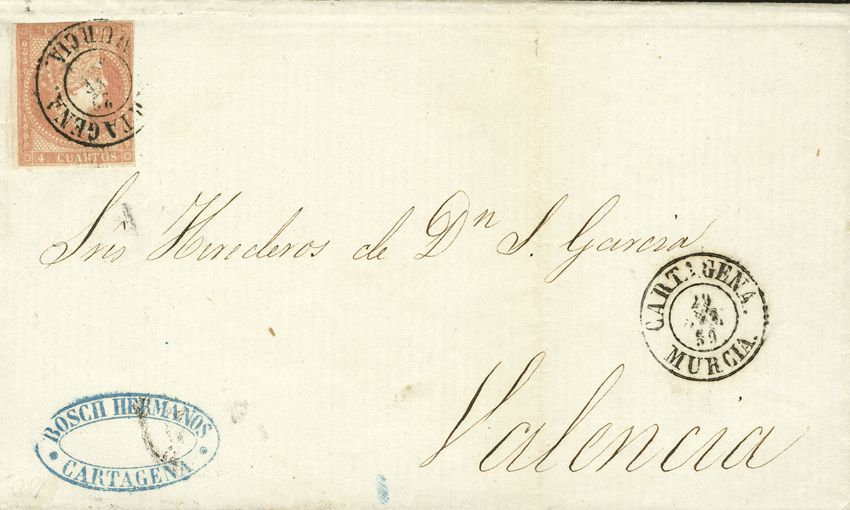 MURCIA.
CARTAGENA.
4 CUARTOS.
Sres Herederos de Dn S. Garcia
CARTAGENA.
59
MURCIA.
Valencia
BOSCH HERMANOS
CARTAGENA